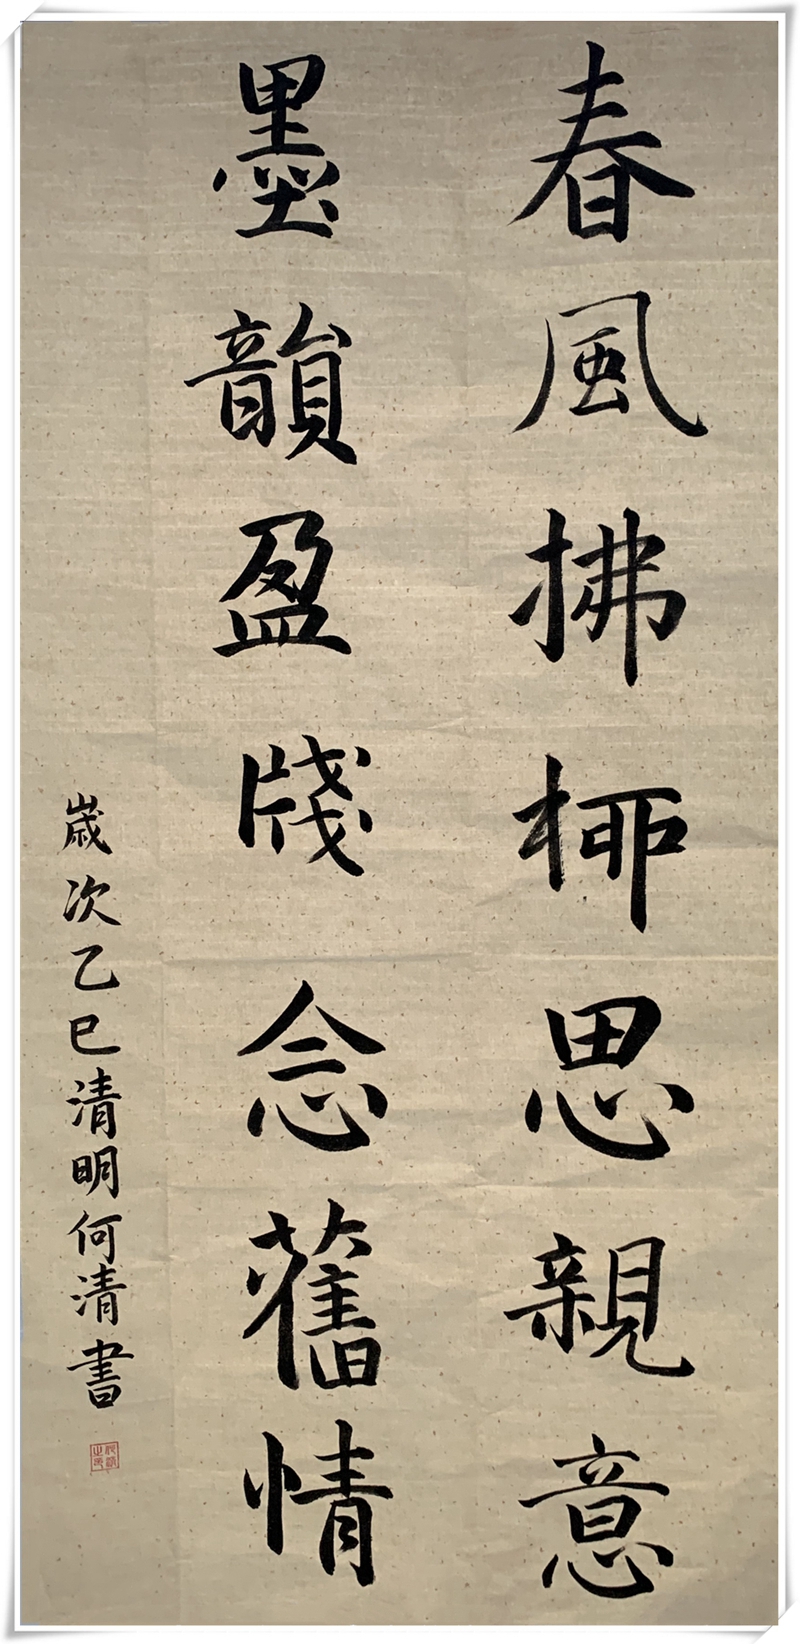 春風拂桺思親意
墨韻盈牋念舊情
歲次乙巳清明何清書